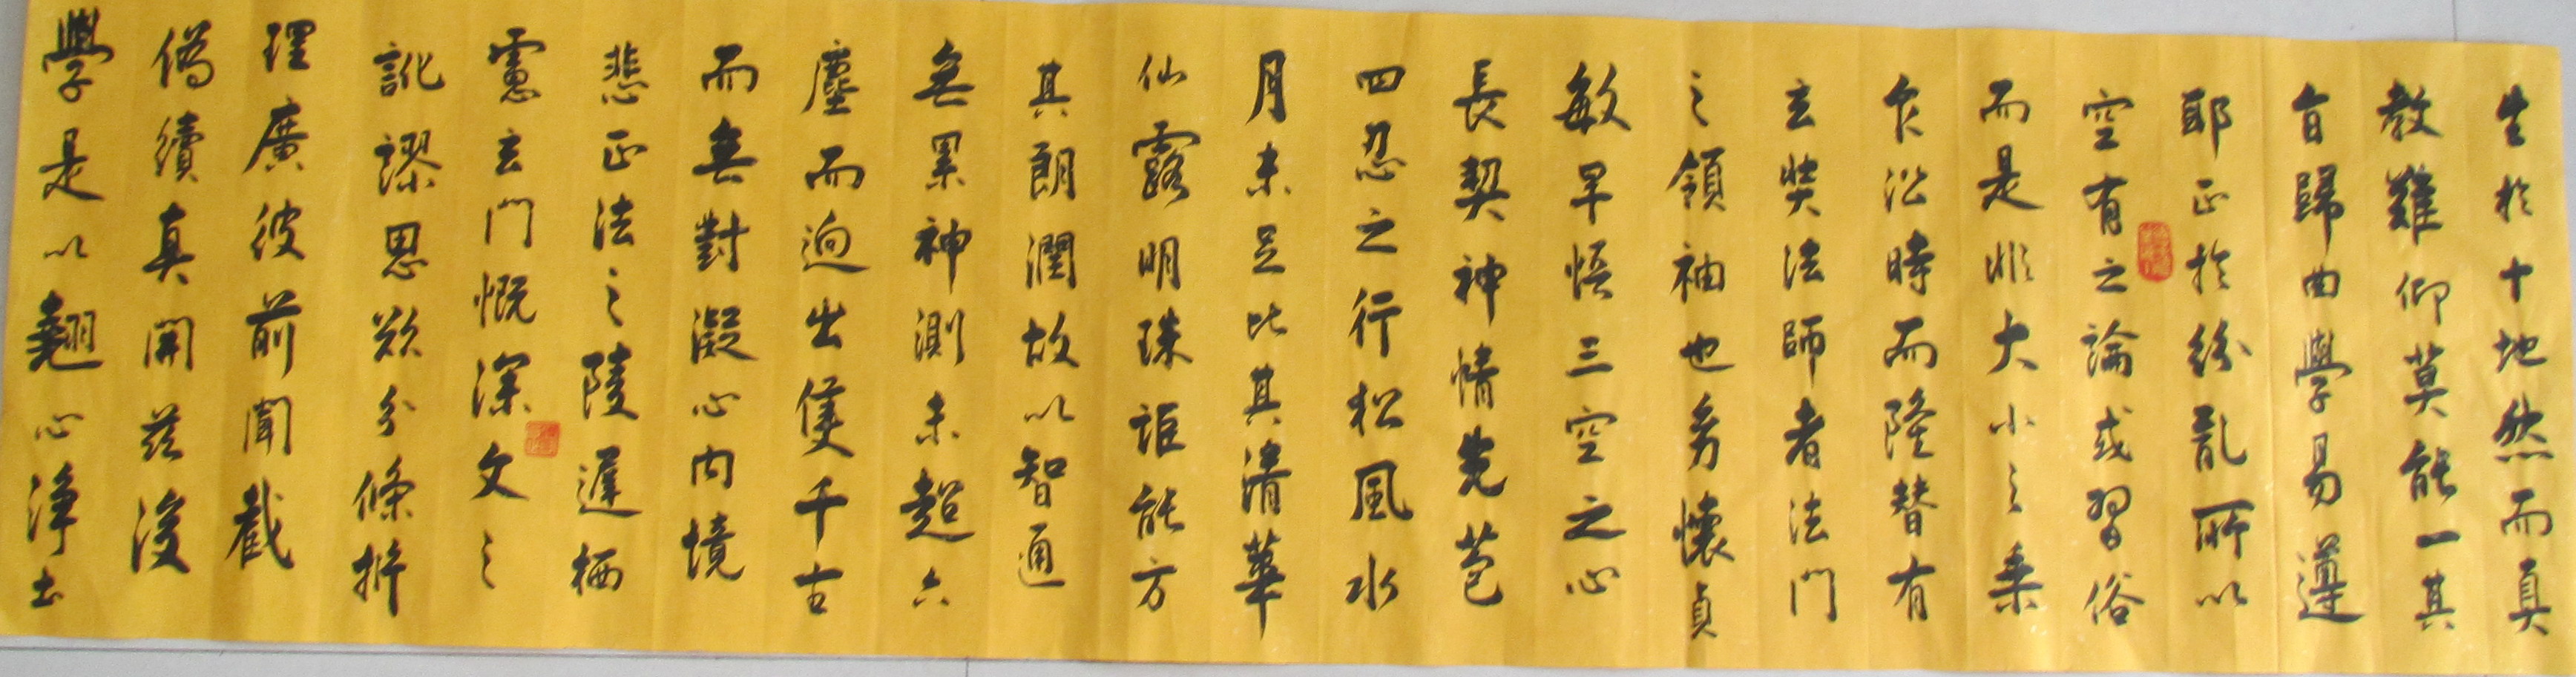 生於十地然而真
教難仰莫能一其
旨歸曲學易遵
耶正於紛亂所以
空有之論或習俗
而是非大小之乘
乍沿時而隆替有
玄奘法師者法門
之領袖也多懷貞
敏早悟三空之心
長契神情先苞
四忍之行松風水
月未足比其清華
仙露明珠詎能方
其朗潤故以智通
無累神測未超六
塵而迥出隻千古
而無對凝心內境
悲正法之陵遲栖
慮玄門慨深文之
訛謬思欲分條析
理廣彼前聞截
偽續真開茲後
學是以翹心淨土